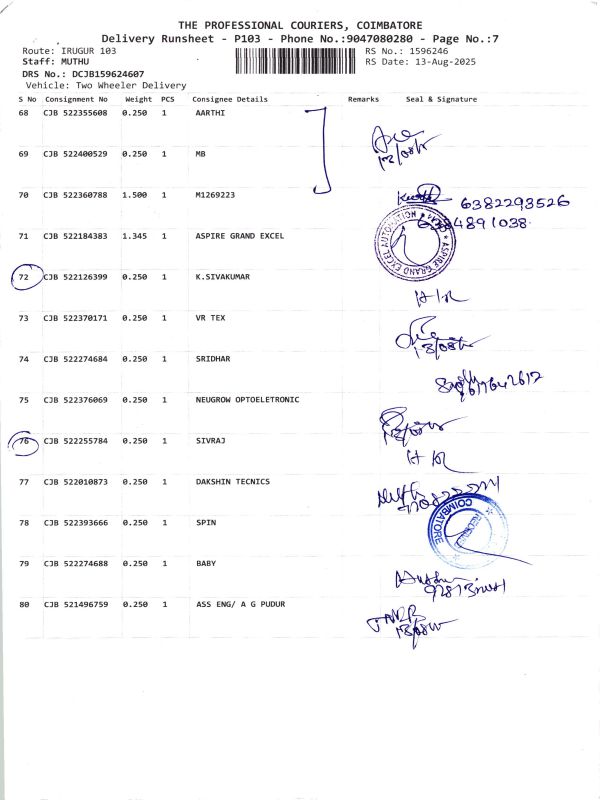 THE PROFESSIONAL COURIERS, COIMBATORE
Delivery Runsheet - P103 - Phone No.:9047080280 - Page No.:7
Route: IRUGUR 103 RS No.: 1596246
Staff: MUTHU RS Date: 13-Aug-2025
DRS No.: DCJB159624607
Vehicle: Two Wheeler Delivery
S No Consignment No Weight PCS Consignee Details Remarks Seal & Signature
68 CJB 522355608 0.250 1 AARTHI
13/08/
69 CJB 522400529 0.250 1 MB
70 CJB 522360788 1.500 1 M1269223
6382293526
6384891038
71 CJB 522184383 1.345 1 ASPIRE GRAND EXCEL
ASPIRE GRAND EXCEL AUTOMATION
72 CJB 522126399 0.250 1 K.SIVAKUMAR
73 CJB 522370171 0.250 1 VR TEX
13/08/
74 CJB 522274684 0.250 1 SRIDHAR
75 CJB 522376069 0.250 1 NEUGROW OPTOELETRONIC
76 CJB 522255784 0.250 1 SIVRAJ
77 CJB 522010873 0.250 1 DAKSHIN TECNICS
78 CJB 522393666 0.250 1 SPIN
COIMBATORE
79 CJB 522274688 0.250 1 BABY
80 CJB 521496759 0.250 1 ASS ENG/ A G PUDUR